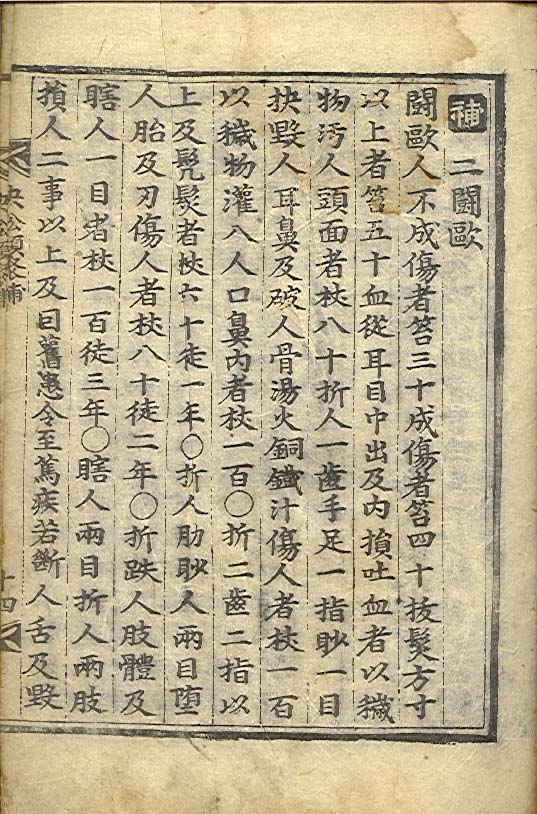 補 二鬪歐
鬪歐人不成傷者笞三十成傷者笞四十拔髮方寸
以上者笞五十血從耳目中出及內損吐血者以穢
物汚人頭面者杖八十折人一齒手足一指眇一目
抉毀人耳鼻及破人骨湯火銅鐵汁傷人者杖一百
以穢物灌入人口鼻內者杖一百〇折二齒二指以
上及髠髮者杖六十徒一年〇折人肋眇人兩目墮
人胎及刃傷人者杖八十徒二年〇折跌人肢體及
瞎人一目者杖一百徒三年〇瞎人兩目折人兩肢
損人二事以上及因舊患令至篤疾若斷人舌及毀
決訟類聚補
十四